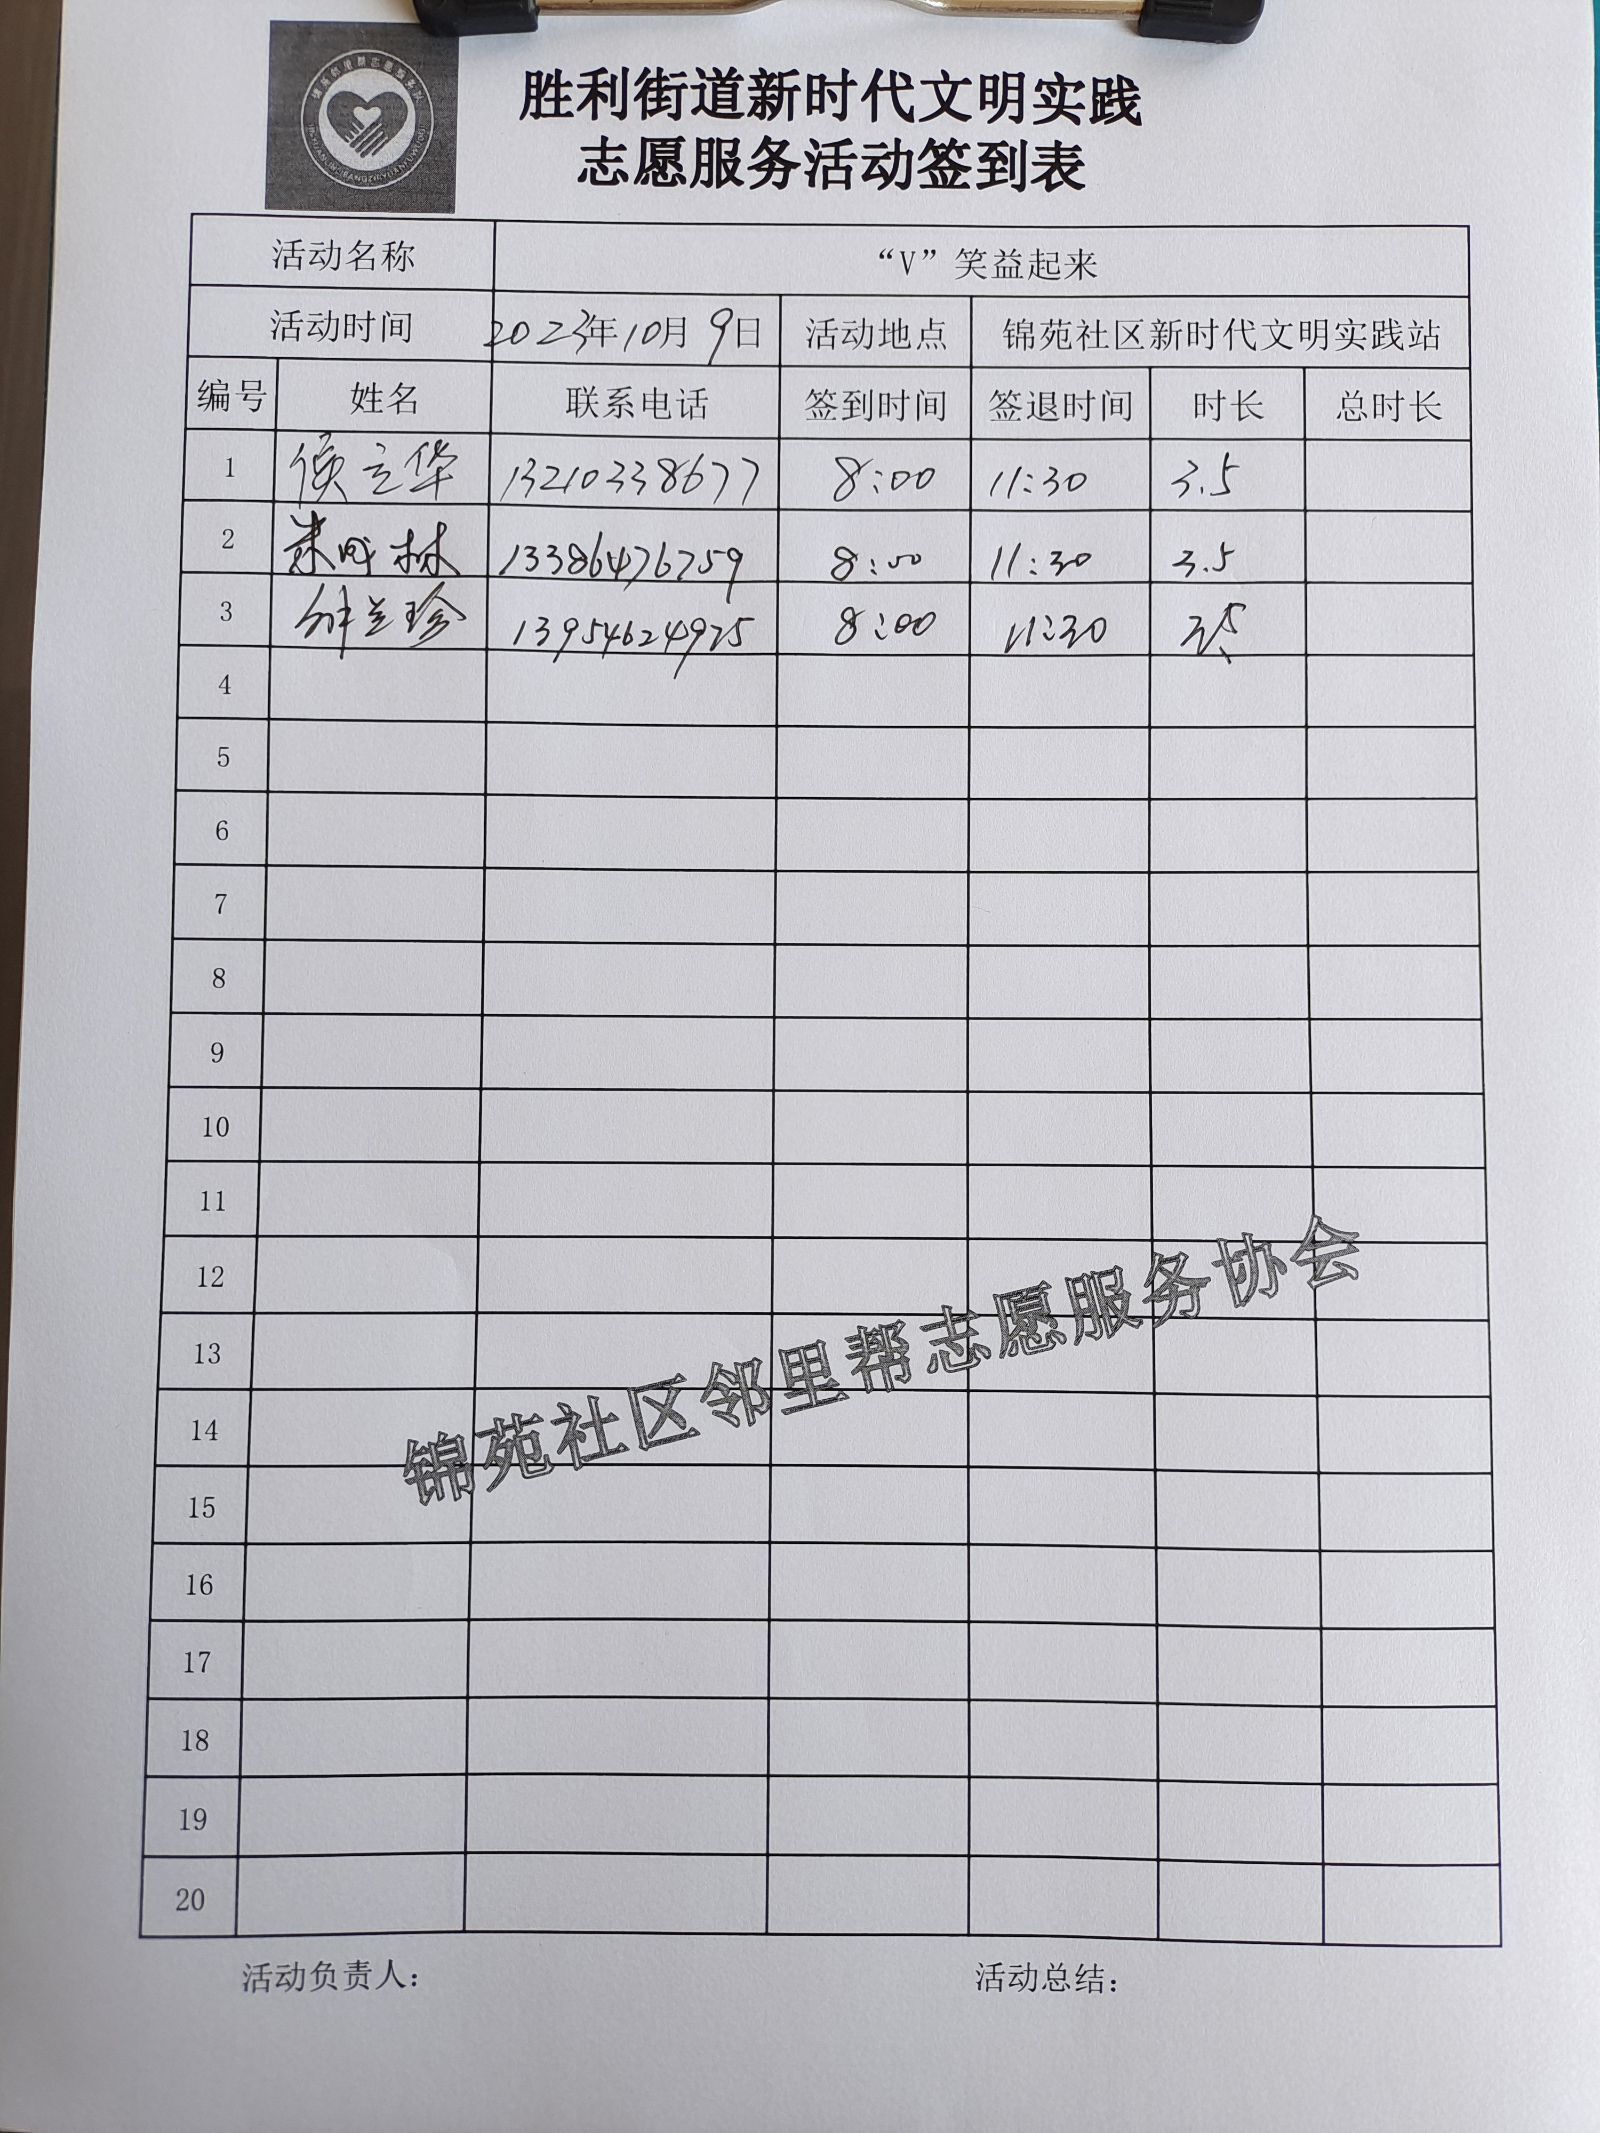 胜利街道新时代文明实践
志愿服务活动签到表
活动名称 “V”笑益起来
活动时间 2023年10月9日 活动地点 锦苑社区新时代文明实践站
编号 姓名 联系电话 签到时间 签退时间 时长 总时长
1 侯立华 13210338677 8:00 11:30 3.5
2 林 13386476759 8:00 11:30 3.5
3 钟兰珍 13954624975 8:00 11:30 3.5
4
5
6
7
8
9
10
11
12
13
14
15
16
17
18
19
20
锦苑社区邻里帮志愿服务协会
活动负责人： 活动总结：